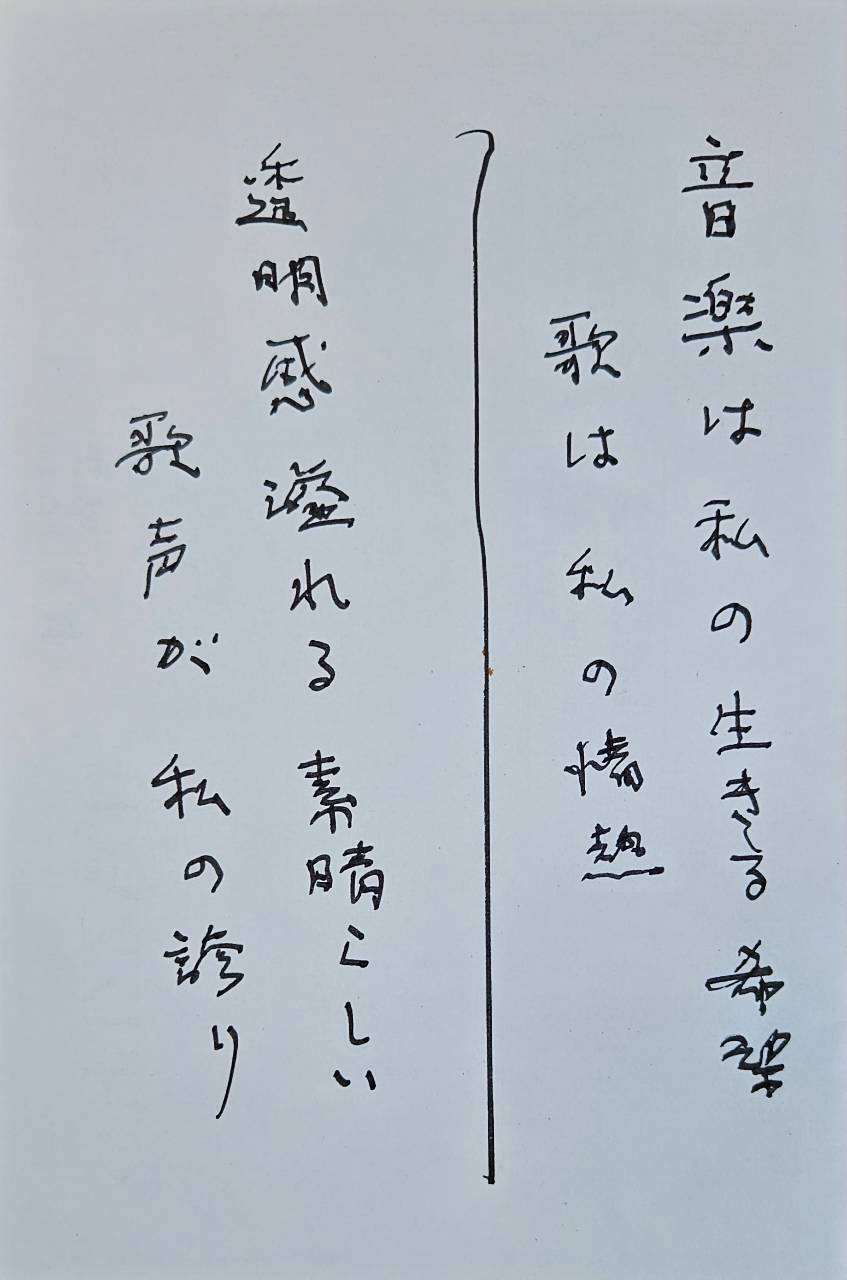 音楽は私の生きる希望
歌は私の情熱
透明感溢れる素晴らしい
歌声が私の誇り